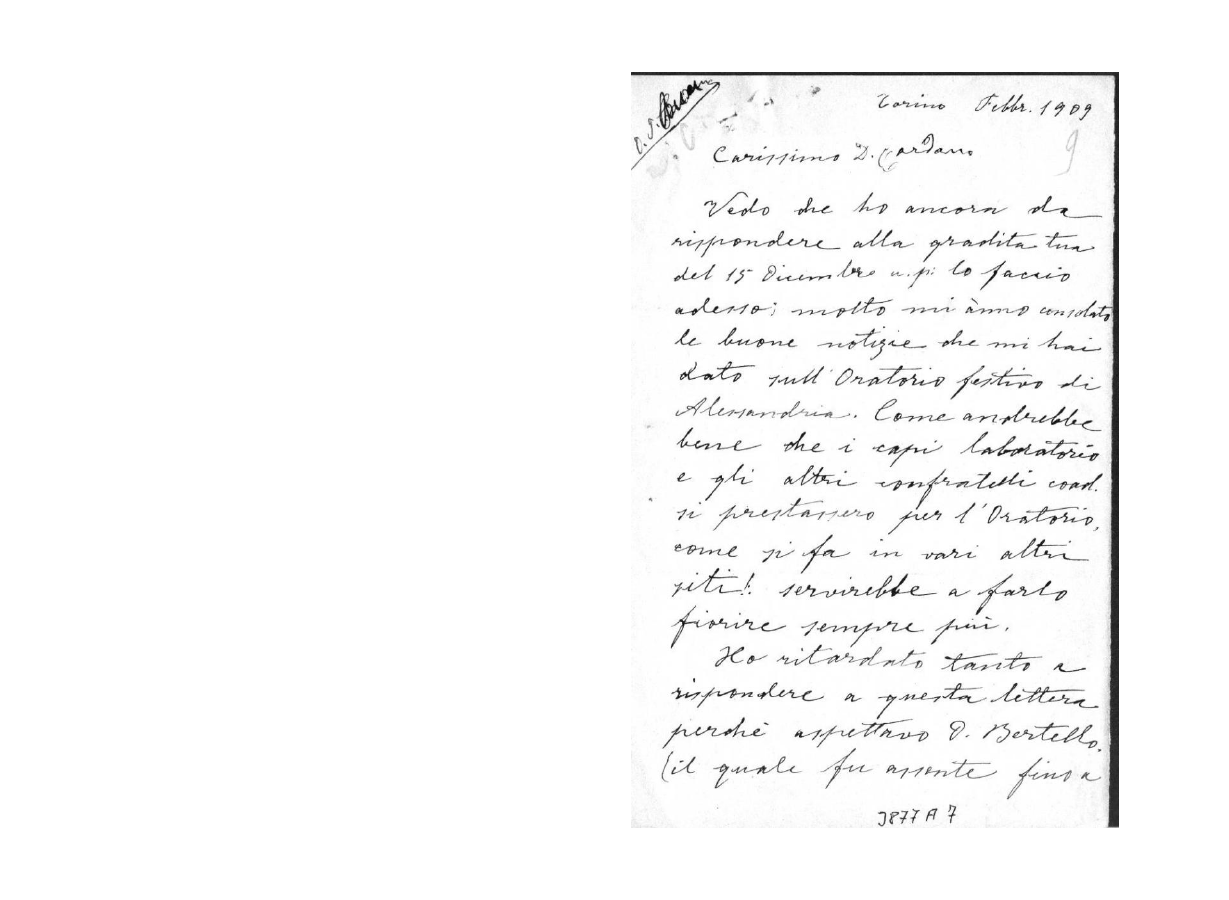 Torino Febbr. 1909
9
Carissimo D.
Vedo che ho ancora da
rispondere alla gradita tua
del 15 Dicembre u.p: lo faccio
adesso; molto mi ànno consolato
le buone notizie che mi hai
dato sull'Oratorio festivo di
Alessandria. Come andrebbe
bene che i capi laboratorio
e gli altri confratelli coad.
si prestassero per l'Oratorio,
come si fa in vari altri
siti! servirebbe a farlo
fiorire sempre più.
Ho ritardato tanto a
rispondere a questa lettera
perchè aspettavo D. Bertello.
(il quale fu assente fino a
3877 A 7